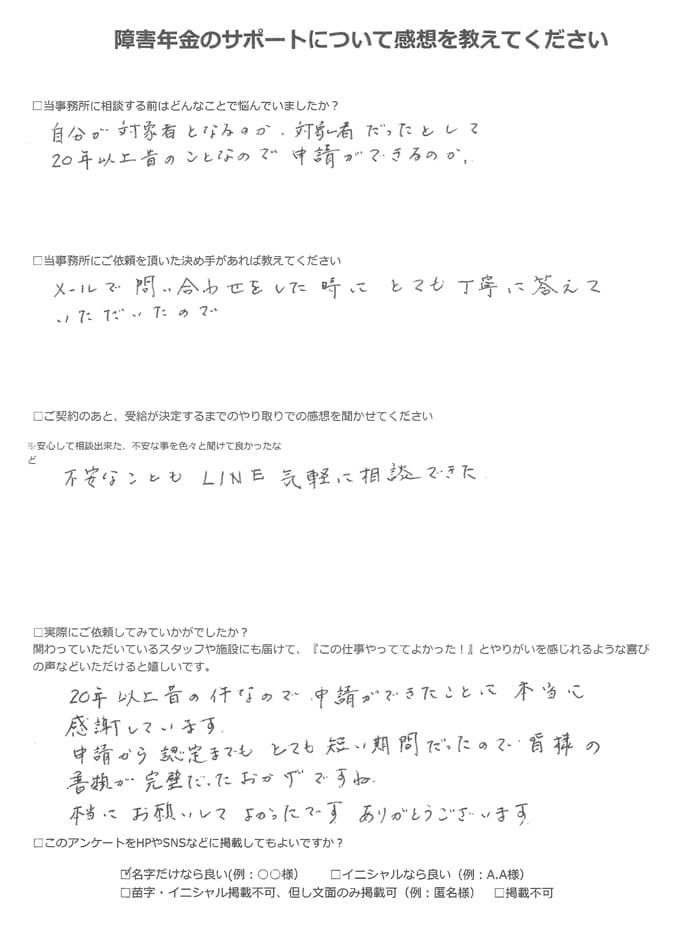 障害年金のサポートについて感想を教えてください
□当事務所に相談する前はどんなことで悩んでいましたか？
自分が対象者となるのか、対象者だったとして
20年以上昔のことなので申請ができるのか。
□当事務所にご依頼を頂いた決め手があれば教えてください
メールで問い合わせをした時にとても丁寧に答えて
いただいたので
□ご契約のあと、受給が決定するまでのやり取りでの感想を聞かせてください
※安心して相談出来た、不安な事を色々と聞けて良かったな
ど
不安なことも LINE 気軽に相談できた
□実際にご依頼してみていかがでしたか？
関わっていただいているスタッフや施設にも届けて、『この仕事やっててよかった！』とやりがいを感じれるような喜び
の声などいただけると嬉しいです。
20年以上昔の件なので申請ができたことに本当に
感謝しています。
申請から認定までもとても短い期間だったので皆様の
書類が完璧だったおかげですね。
本当にお願いしてよかったです ありがとうございます
□このアンケートをHPやSNSなどに掲載してもよいですか？
☑名字だけなら良い(例：○○様） □イニシャルなら良い（例：A.A様）
□苗字・イニシャル掲載不可、但し文面のみ掲載可（例：匿名様） □掲載不可